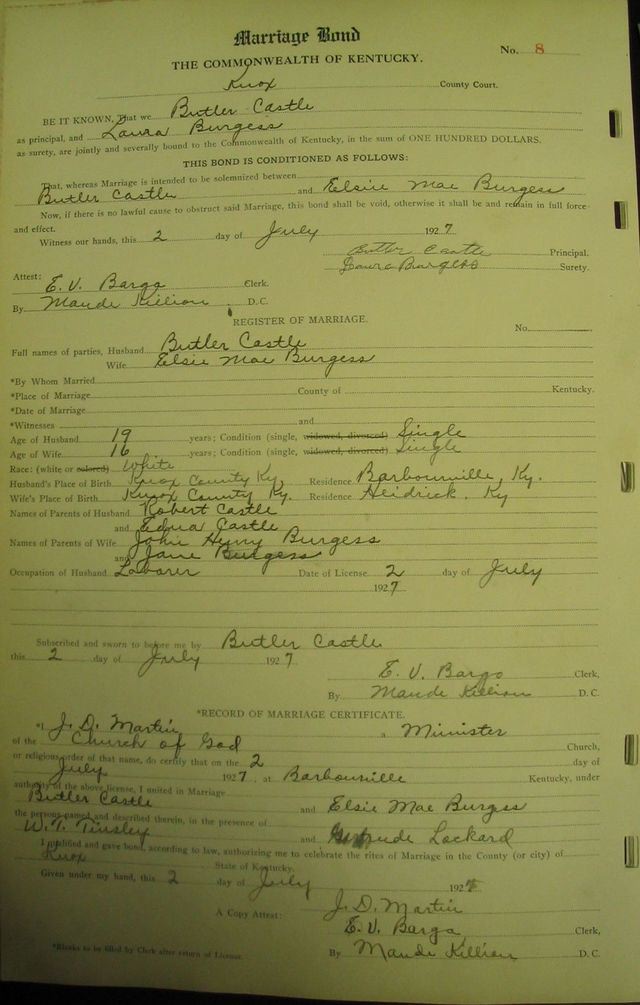 Marriage Bond
No. 8
THE COMMONWEALTH OF KENTUCKY.
Knox County Court.
BE IT KNOWN, That we Butler Castle
as principal, and Laura Burgess
as surety, are jointly and severally bound to the Commonwealth of Kentucky, in the sum of ONE HUNDRED DOLLARS.
THIS BOND IS CONDITIONED AS FOLLOWS:
That, whereas Marriage is intended to be solemnized between
Butler Castle and Elsie Mae Burgess
Now, if there is no lawful cause to obstruct said Marriage, this bond shall be void, otherwise it shall be and remain in full force
and effect.
Witness our hands, this 2 day of July 1927
Butler Castle Principal.
Laura Burgess Surety.
Attest:
E. V. Bargo Clerk.
By Maude Killion D. C.
REGISTER OF MARRIAGE.
No.
Full names of parties, Husband Butler Castle
Wife Elsie Mae Burgess
*By Whom Married
*Place of Marriage County of Kentucky.
*Date of Marriage
*Witnesses and
Age of Husband 19 years; Condition (single, widowed, divorced) Single
Age of Wife 16 years; Condition (single, widowed, divorced) Single
Race: (white or colored) White
Husband's Place of Birth Knox County Ky. Residence Barbourville, Ky.
Wife's Place of Birth Knox County Ky. Residence Heidrick. Ky
Names of Parents of Husband Robert Castle
and Edna Castle
Names of Parents of Wife John Henry Burgess
and Jane Burgess
Occupation of Husband Laborer Date of License 2 day of July
1927
Subscribed and sworn to before me by Butler Castle
this 2 day of July 1927.
E. V. Bargo Clerk,
By Maude Killion D. C.
*RECORD OF MARRIAGE CERTIFICATE.
*I J. D. Martin a Minister
of the Church of God Church,
or religious order of that name, do certify that on the 2 day of
July 1927, at Barbourville Kentucky, under
authority of the above license, I united in Marriage
Butler Castle and Elsie Mae Burgess
the persons named and described therein, in the presence of
W. T. Tinsley and Gertrude Lockard
I qualified and gave bond, according to law, authorizing me to celebrate the rites of Marriage in the County (or city) of
Knox State of Kentucky.
Given under my hand, this 2 day of July 192
J. D. Martin
A Copy Attest: E. V. Bargo Clerk,
*Blanks to be filled by Clerk after return of License. By Maude Killion D. C.